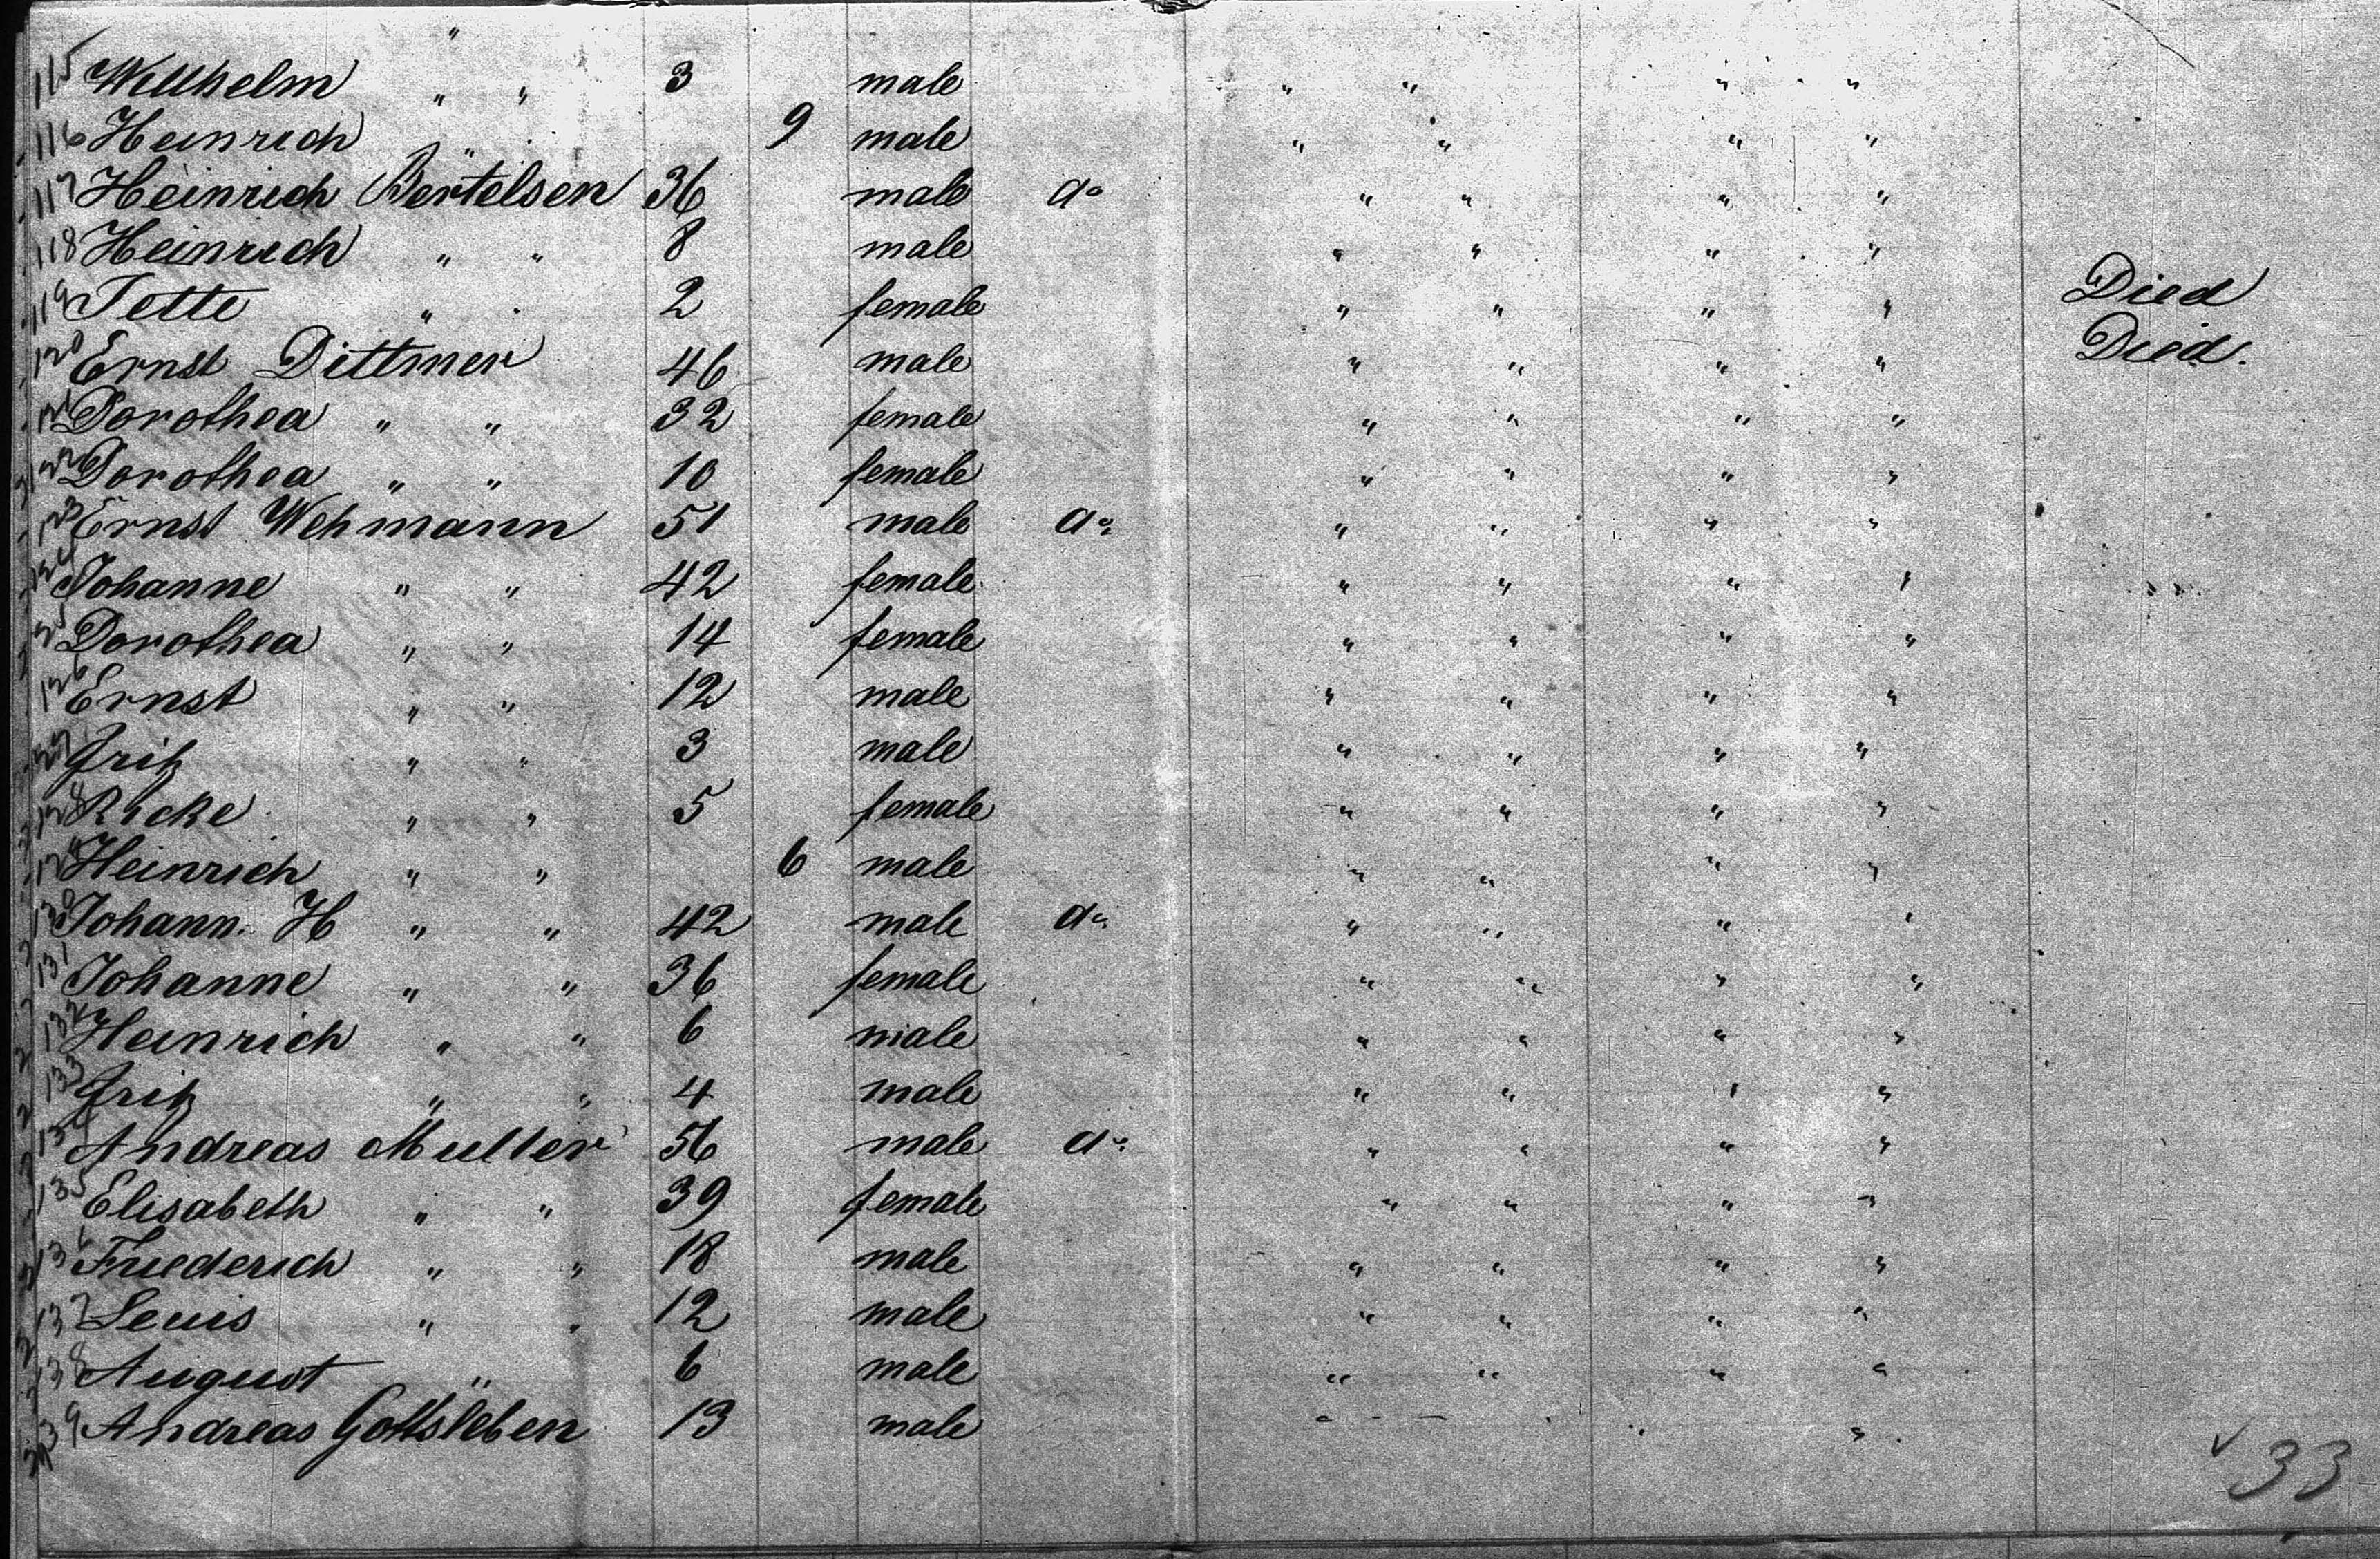 "
115 Willhelm " " 3 male " " " "
116 Heinrich " " 9 male " " " "
117 Heinrich Bertelsen 36 male do " " " "
118 Heinrich " " 8 male " " " "
119 Jette " " 2 female " " " " Died
120 Ernst Dittmer 46 male " " " " Died.
121 Dorothea " " 32 female " " " "
122 Dorothea " " 10 female " " " "
123 Ernst Wehmann 51 male do " " " "
124 Johanne " " 42 female " " " "
125 Dorothea " " 14 female " " " "
126 Ernst " " 12 male " " " "
127 Fritz " " 3 male " " " "
128 Ricke " " 5 female " " " "
129 Heinrich " " 6 male " " " "
130 Johann. H " " 42 male do " " " "
131 Johanne " " 36 female " " " "
132 Heinrich " " 6 male " " " "
133 Fritz " " 4 male " " " "
134 Andreas Muller 56 male do " " " "
135 Elisabeth " " 39 female " " " "
136 Friederich " " 18 male " " " "
137 Leuis " " 12 male " " " "
138 August " 6 male " " " "
139 Andreas Gottsleben 13 male " " " "
33